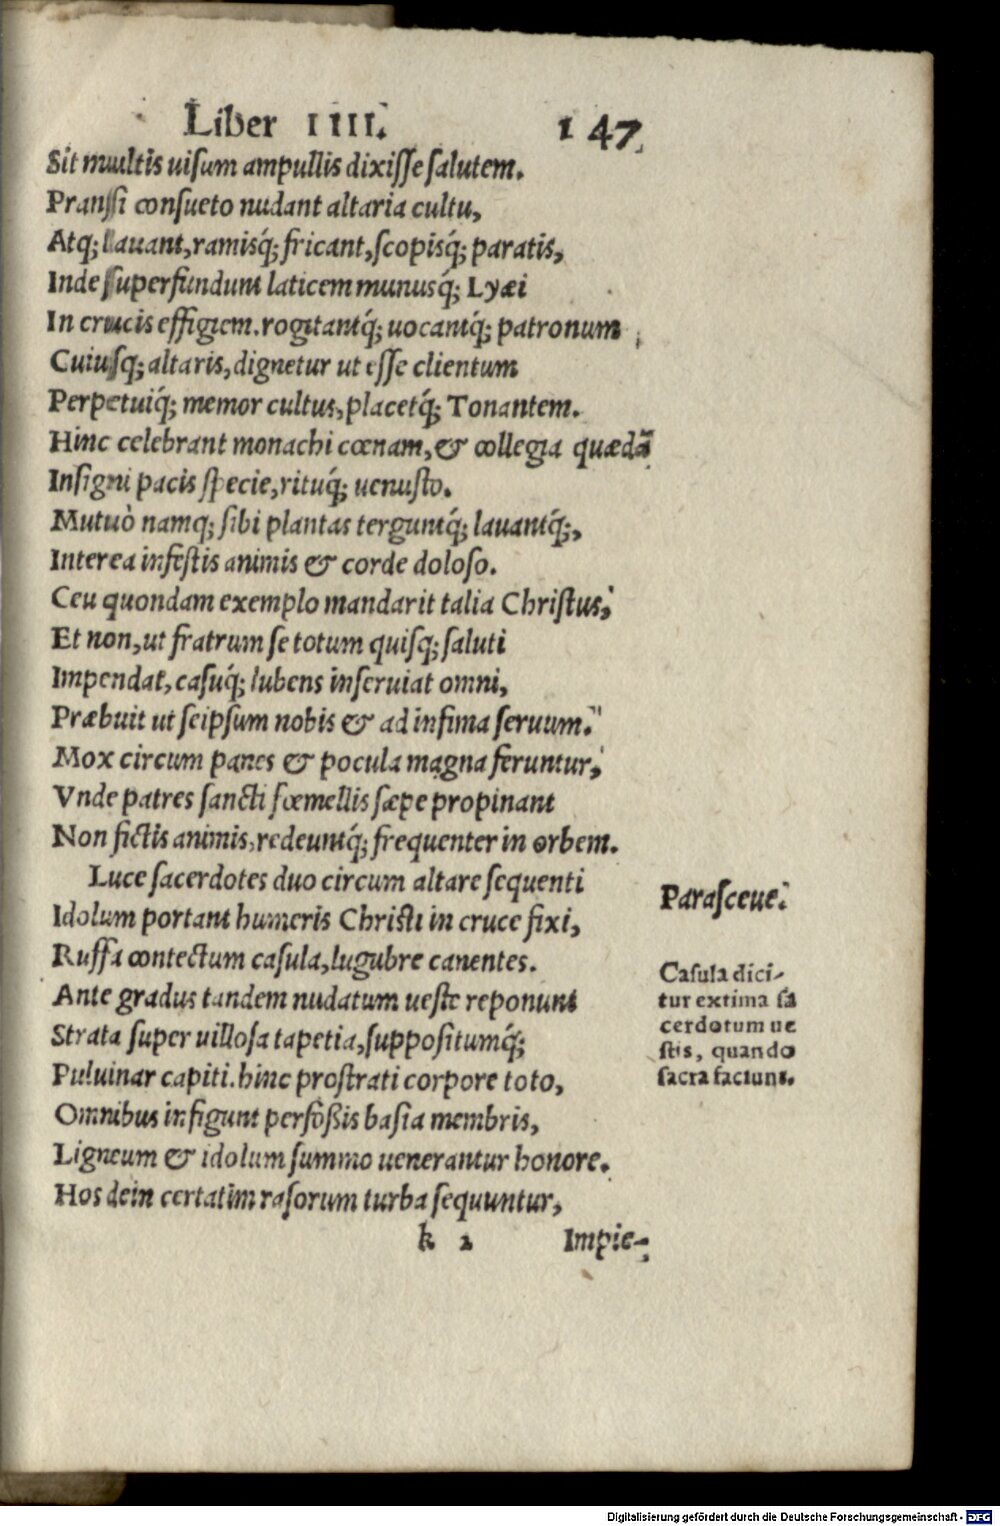 Liber IIII. 147
Sit multis uisum ampullis dixisse salutem.
Pransi consueto nudant altaria cultu,
Atq; lauant, ramisq́; fricant, scopisq́; paratis,
Inde superfundunt laticem munusq́; Lyæi
In crucis effigiem. rogitantq́; uocantq́; patronum
Cuiusq; altaris, dignetur ut esse clientum
Perpetuiq́; memor cultus, placetq́; Tonantem.
Hinc celebrant monachi cœnam, & collegia quædā
Insigni pacis specie, rituq́; uenusto.
Mutuò namq; sibi plantas terguntq́; lauantq́;,
Interea infestis animis & corde doloso.
Ceu quondam exemplo mandarit talia Christus,
Et non, ut fratrum se totum quisq; saluti
Impendat, casuq́; lubens inseruiat omni,
Præbuit ut seipsum nobis & ad infima seruum.
Mox circum panes & pocula magna feruntur,
Vnde patres sancti fœmellis sæpe propinant
Non fictis animis, redeuntq́; frequenter in orbem.
Luce sacerdotes duo circum altare sequenti
Parasceue.
Idolum portant humeris Christi in cruce fixi,
Ruffa contectum casula, lugubre canentes.
Casula dici-
tur extima sa
cerdotum ue
stis, quando
sacra faciunt.
Ante gradus tandem nudatum ueste reponunt
Strata super uillosa tapetia, suppositumq́;
Puluinar capiti. hinc prostrati corpore toto,
Omnibus infigunt perfoßis basia membris,
Ligneum & idolum summo uenerantur honore.
Hos dein certatim rasorum turba sequuntur,
k 2 Impie-
Digitalisierung gefördert durch die Deutsche Forschungsgemeinschaft - DFG